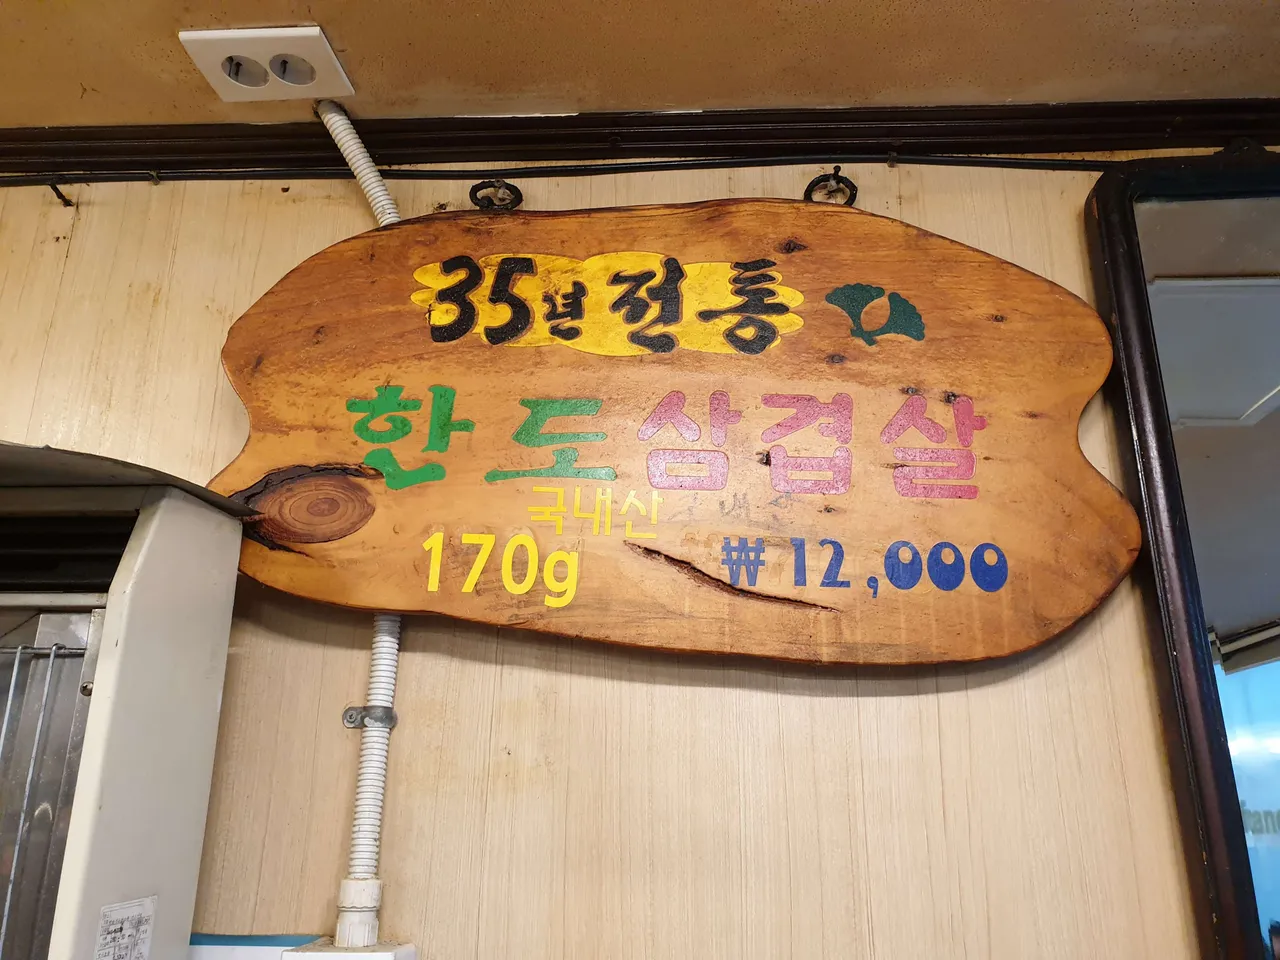 35년 전통
한도삼겹살
국내산
170g ₩12,000